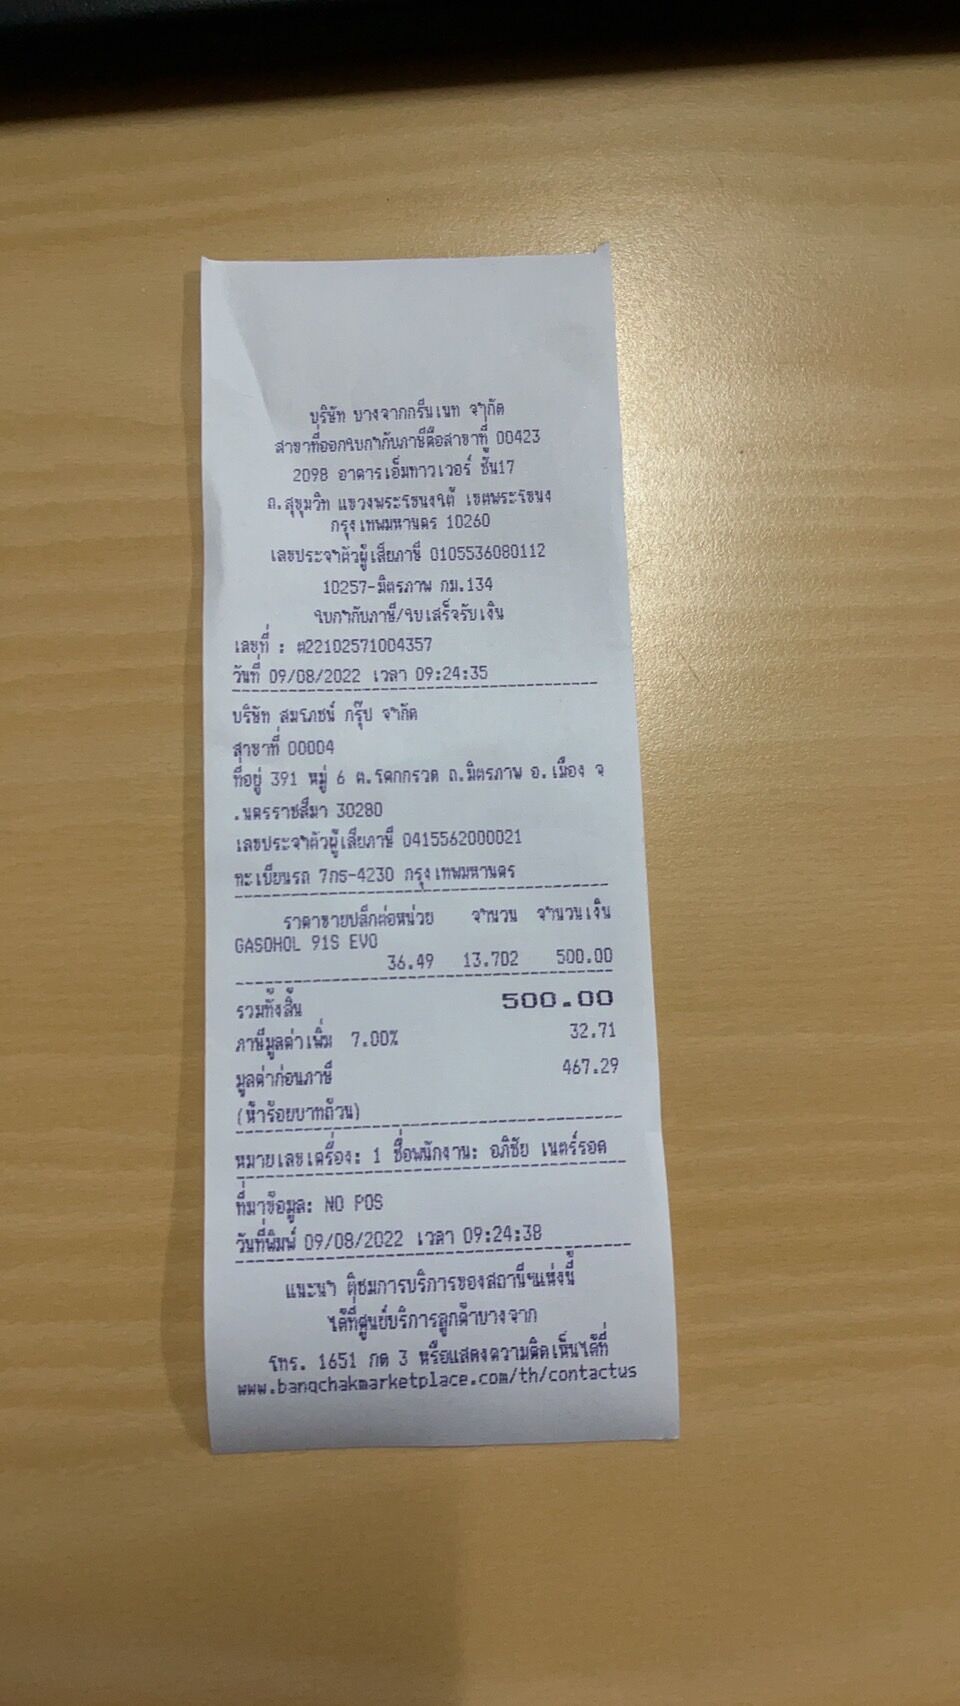 บริษัท บางจากกรีนเนท จำกัด
สาขาที่ออกใบกำกับภาษีคือสาขาที่ 00423
2098 อาคารเอ็มทาวเวอร์ ชั้น17
ถ.สุขุมวิท แขวงพระโขนงใต้ เขตพระโขนง
กรุงเทพมหานคร 10260
เลขประจำตัวผู้เสียภาษี 0105536080112
10257-มิตรภาพ กม.134
ใบกำกับภาษี/ใบเสร็จรับเงิน
เลขที่ : ต22102571004357
วันที่ 09/08/2022 เวลา 09:24:35
บริษัท สมโภชน์ กรุ๊ป จำกัด
สาขาที่ 00004
ที่อยู่ 391 หมู่ 6 ต.โคกกรวด ถ.มิตรภาพ อ.เมือง จ
.นครราชสีมา 30280
เลขประจำตัวผู้เสียภาษี 0415562000021
ทะเบียนรถ 7กร-4230 กรุงเทพมหานคร
ราคาขายปลีกต่อหน่วย จำนวน จำนวนเงิน
GASOHOL 91S EVO
36.49 13.702 500.00
รวมทั้งสิ้น 500.00
ภาษีมูลค่าเพิ่ม 7.00% 32.71
มูลค่าก่อนภาษี 467.29
(ห้าร้อยบาทถ้วน)
หมายเลขเครื่อง: 1 ชื่อพนักงาน: อภิชัย เนตร์รอด
ที่มาข้อมูล: NO POS
วันที่พิมพ์ 09/08/2022 เวลา 09:24:38
แนะนำ ติชมการบริการของสถานีฯแห่งนี้
ได้ที่ศูนย์บริการลูกค้าบางจาก
โทร. 1651 กด 3 หรือแสดงความคิดเห็นได้ที่
www.bangchakmarketplace.com/th/contactus